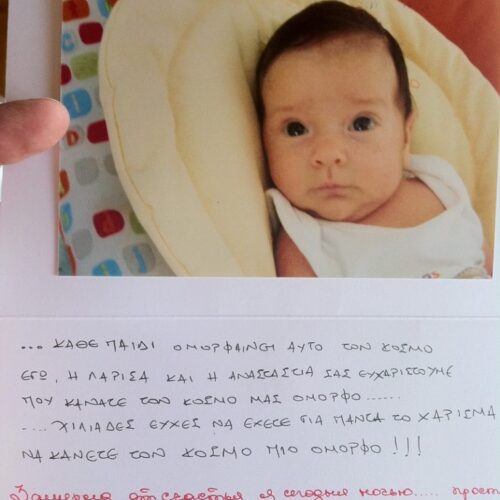 ... ΚΑΘΕ ΠΑΙΔΙ ΟΜΟΡΦΑΙΝΕΙ ΑΥΤΟ ΤΟΝ ΚΟΣΜΟ
ΕΓΩ, Η ΛΑΡΙΣΑ ΚΑΙ Η ΑΝΑΣΤΑΣΙΑ ΣΑΣ ΕΥΧΑΡΙΣΤΟΥΜΕ
ΠΟΥ ΚΑΝΑΤΕ ΤΟΝ ΚΟΣΜΟ ΜΑΣ ΟΜΟΡΦΟ......
.... ΧΙΛΙΑΔΕΣ ΕΥΧΕΣ ΝΑ ΕΧΕΤΕ ΓΙΑ ΠΑΝΤΑ ΤΟ ΧΑΡΙΣΜΑ
ΝΑ ΚΑΝΕΤΕ ΤΟΝ ΚΟΣΜΟ ΠΙΟ ΟΜΟΡΦΟ !!!
от счастья я сегодня ночью.... прост